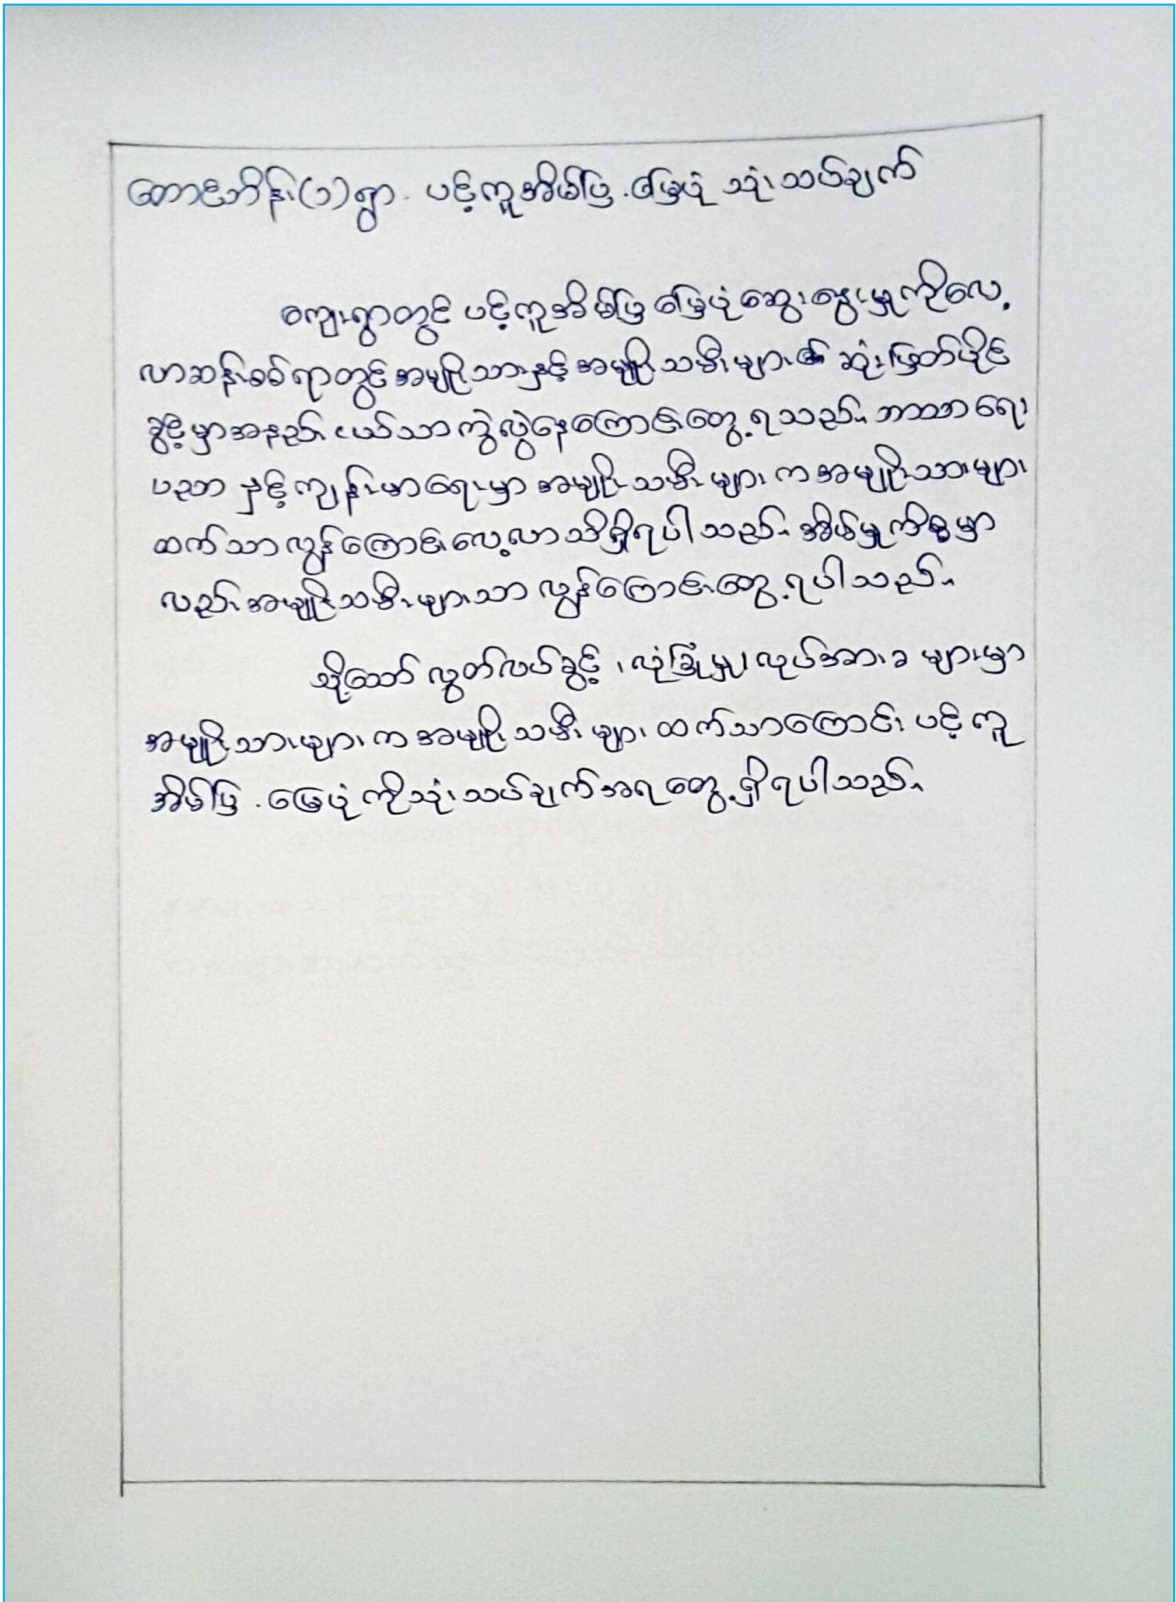 တောင်ဘိန်း(၁)ရွာ. ပင့်ကူအိမ်ပြ.မြေပုံ သုံးသပ်ချက်
ကျေးရွာတွင် ပင့်ကူအိမ်ပြ မြေပုံဆွေးနွေးမှုကိုလေ့
လာဆန်းစစ်ရာတွင်အမျိုးသားနှင့်အမျိုးသမီးများ၏ ဆုံးဖြတ်ပိုင်
ခွင့်မှာအနည်းငယ်သာကွဲလွဲနေကြောင်းတွေ့ရသည်။ ဘာသာရေး၊
ပညာ နှင့်ကျန်းမာရေးမှာ အမျိုးသမီးများ ကအမျိုးသားများ
ထက်သာလွန်ကြောင်းလေ့လာသိရှိရပါသည်။ အိမ်မှုကိစ္စမှာ
လည်းအမျိုးသမီးများသာ လွန်ကြောင်းတွေ့ရပါသည်။
သို့သော် လွတ်လပ်ခွင့် ၊လုံခြုံမှု၊လုပ်အားခ များမှာ
အမျိုးသားများ ကအမျိုးသမီး များ ထက်သာကြောင်း ပင့်ကူ
အိမ်ပြ .မြေပုံ ကိုသုံးသပ်ချက်အရတွေ့ရှိရပါသည်။